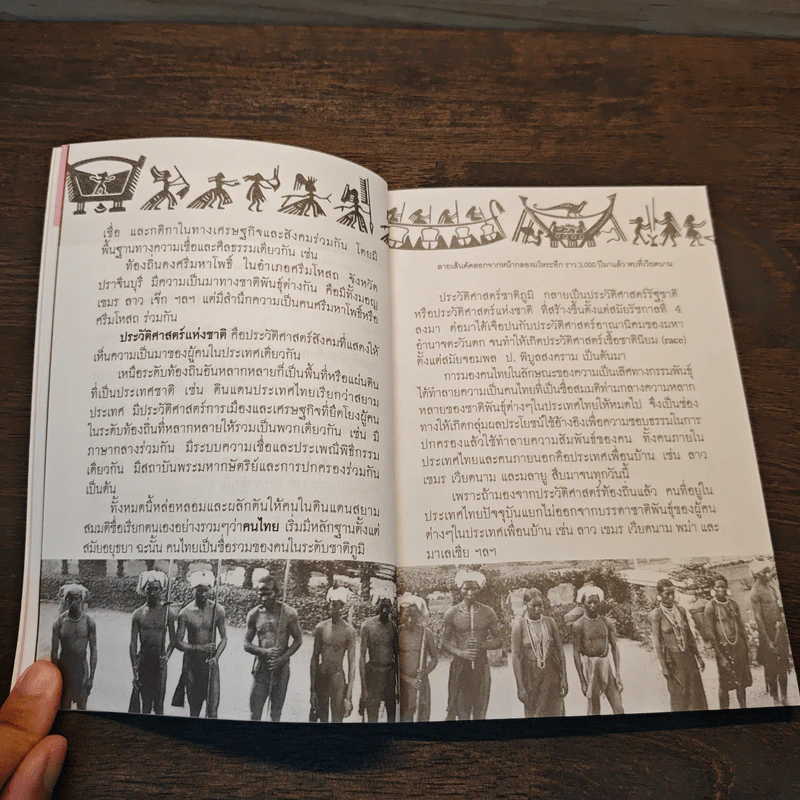 เชื่อ และกติกาในทางเศรษฐกิจและสังคมร่วมกัน โดยมี
พื้นฐานทางความเชื่อและศีลธรรมเดียวกัน เช่น
ท้องถิ่นดงศรีมหาโพธิ์ ในอำเภอศรีมโหสถ จังหวัด
ปราจีนบุรี มีความเป็นมาทางชาติพันธุ์ต่างกัน คือมีทั้งมอญ
เขมร ลาว เจ๊ก ฯลฯ แต่มีสำนึกความเป็นคนศรีมหาโพธิ์หรือ
ศรีมโหสถ ร่วมกัน
ประวัติศาสตร์แห่งชาติ คือประวัติศาสตร์สังคมที่แสดงให้
เห็นความเป็นมาของผู้คนในประเทศเดียวกัน
เหนือระดับท้องถิ่นอันหลากหลายก็เป็นพื้นที่หรือแผ่นดิน
ที่เป็นประเทศชาติ เช่น ดินแดนประเทศไทยเรียกว่าสยาม
ประเทศ มีประวัติศาสตร์การเมืองและเศรษฐกิจที่ยึดโยงผู้คน
ในระดับท้องถิ่นที่หลากหลายให้รวมเป็นพวกเดียวกัน เช่น มี
ภาษากลางร่วมกัน มีระบบความเชื่อและประเพณีพิธีกรรม
เดียวกัน มีสถาบันพระมหากษัตริย์และการปกครองร่วมกัน
เป็นต้น
ทั้งหมดนี้หล่อหลอมและผลักดันให้คนในดินแดนสยาม
สมมติชื่อเรียกตนเองอย่างรวมๆว่าคนไทย เริ่มมีหลักฐานตั้งแต่
สมัยอยุธยา ฉะนั้น คนไทยเป็นชื่อรวมของคนในระดับชาติภูมิ
ลายเส้นคัดลอกจากหน้ากลองมโหระทึก ราว 3,000 ปีมาแล้ว พบที่เวียดนาม
ประวัติศาสตร์ชาติภูมิ กลายเป็นประวัติศาสตร์รัฐชาติ
หรือประวัติศาสตร์แห่งชาติ ที่สร้างขึ้นตั้งแต่สมัยรัชกาลที่ 4
ลงมา ต่อมาได้เจือปนกับประวัติศาสตร์อาณานิคมของมหา
อำนาจตะวันตก จนทำให้เกิดประวัติศาสตร์เชื้อชาตินิยม (race)
ตั้งแต่สมัยจอมพล ป. พิบูลสงคราม เป็นต้นมา
การมองคนไทยในลักษณะของความเป็นเลิศทางกรรมพันธุ์
ได้ทำลายความเป็นคนไทยที่เป็นชื่อสมมติท่ามกลางความหลาก
หลายของชาติพันธุ์ต่างๆในประเทศไทยให้หมดไป จึงเป็นช่อง
ทางให้เกิดกลุ่มผลประโยชน์ใช้อ้างอิงเพื่อความชอบธรรมในการ
ปกครองแล้วใช้ทำลายความสัมพันธ์ของคน ทั้งคนภายใน
ประเทศไทยและคนภายนอกคือประเทศเพื่อนบ้าน เช่น ลาว
เขมร เวียดนาม และมลายู สืบมาจนทุกวันนี้
เพราะถ้ามองจากประวัติศาสตร์ท้องถิ่นแล้ว คนที่อยู่ใน
ประเทศไทยปัจจุบันแยกไม่ออกจากบรรดาชาติพันธุ์ของผู้คน
ต่างๆในประเทศเพื่อนบ้าน เช่น ลาว เขมร เวียดนาม พม่า และ
มาเลเซีย ฯลฯ